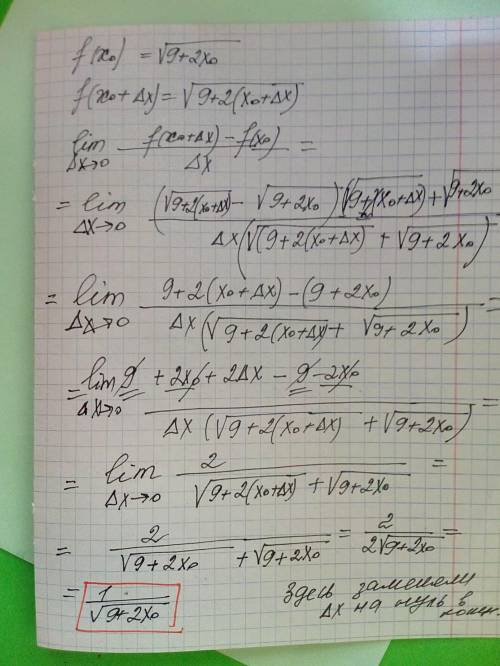 f(x₀) = √(9+2x₀)
f(x₀+Δx) = √(9+2(x₀+Δx))
lim Δx→0 (f(x₀+Δx) - f(x₀))/Δx =
= lim Δx→0 ((√(9+2(x₀+Δx)) - √(9+2x₀))(√(9+2(x₀+Δx)) + √(9+2x₀)))/(Δx(√(9+2(x₀+Δx)) + √(9+2x₀)))
= lim Δx→0 (9+2(x₀+Δx) - (9+2x₀))/(Δx(√(9+2(x₀+Δx)) + √(9+2x₀))) =
= lim Δx→0 (9+2x₀+2Δx - 9 - 2x₀)/(Δx(√(9+2(x₀+Δx)) + √(9+2x₀))) =
= lim Δx→0 2/(√(9+2(x₀+Δx)) + √(9+2x₀)) =
= 2/(√(9+2x₀) + √(9+2x₀)) = 2/(2√(9+2x₀)) =
= 1/√(9+2x₀)
Здесь заменили
Δx на нуль в